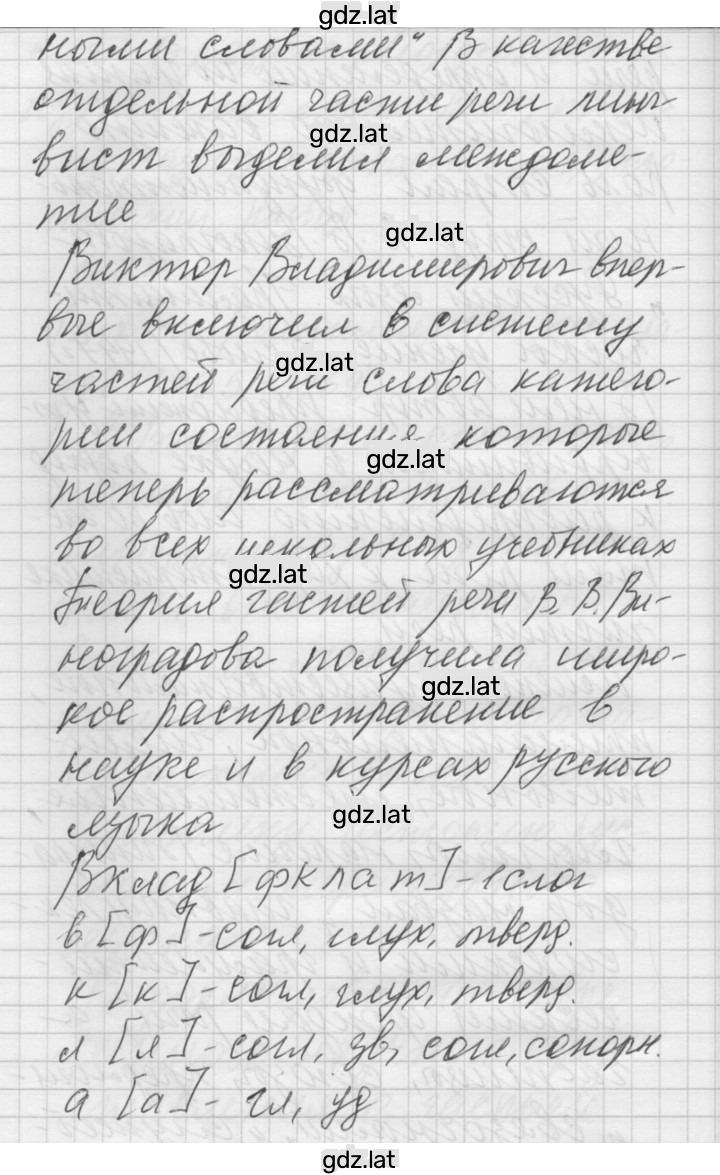 gdz.lat
ными словами" В качестве
отдельной части речи линг-
gdz.lat
вист выделил междоме-
тие
gdz.lat
Виктор Владимирович впер-
вые включил в систему
gdz.lat
частей речи слова катего-
рии состояния которые
gdz.lat
теперь рассматриваются
во всех школьных учебниках
gdz.lat
Теория частей речи В. В. Ви-
ноградова получила широ-
gdz.lat
кое распространение в
науке и в курсах русского
gdz.lat
языка
Вклад [фклат] - 1 слог
в [ф] - согл, глух, тверд.
к [к] - согл, глух, тверд.
л [л] - согл, зв, согл, сонорн.
а [а] - гл, уд
gdz.lat